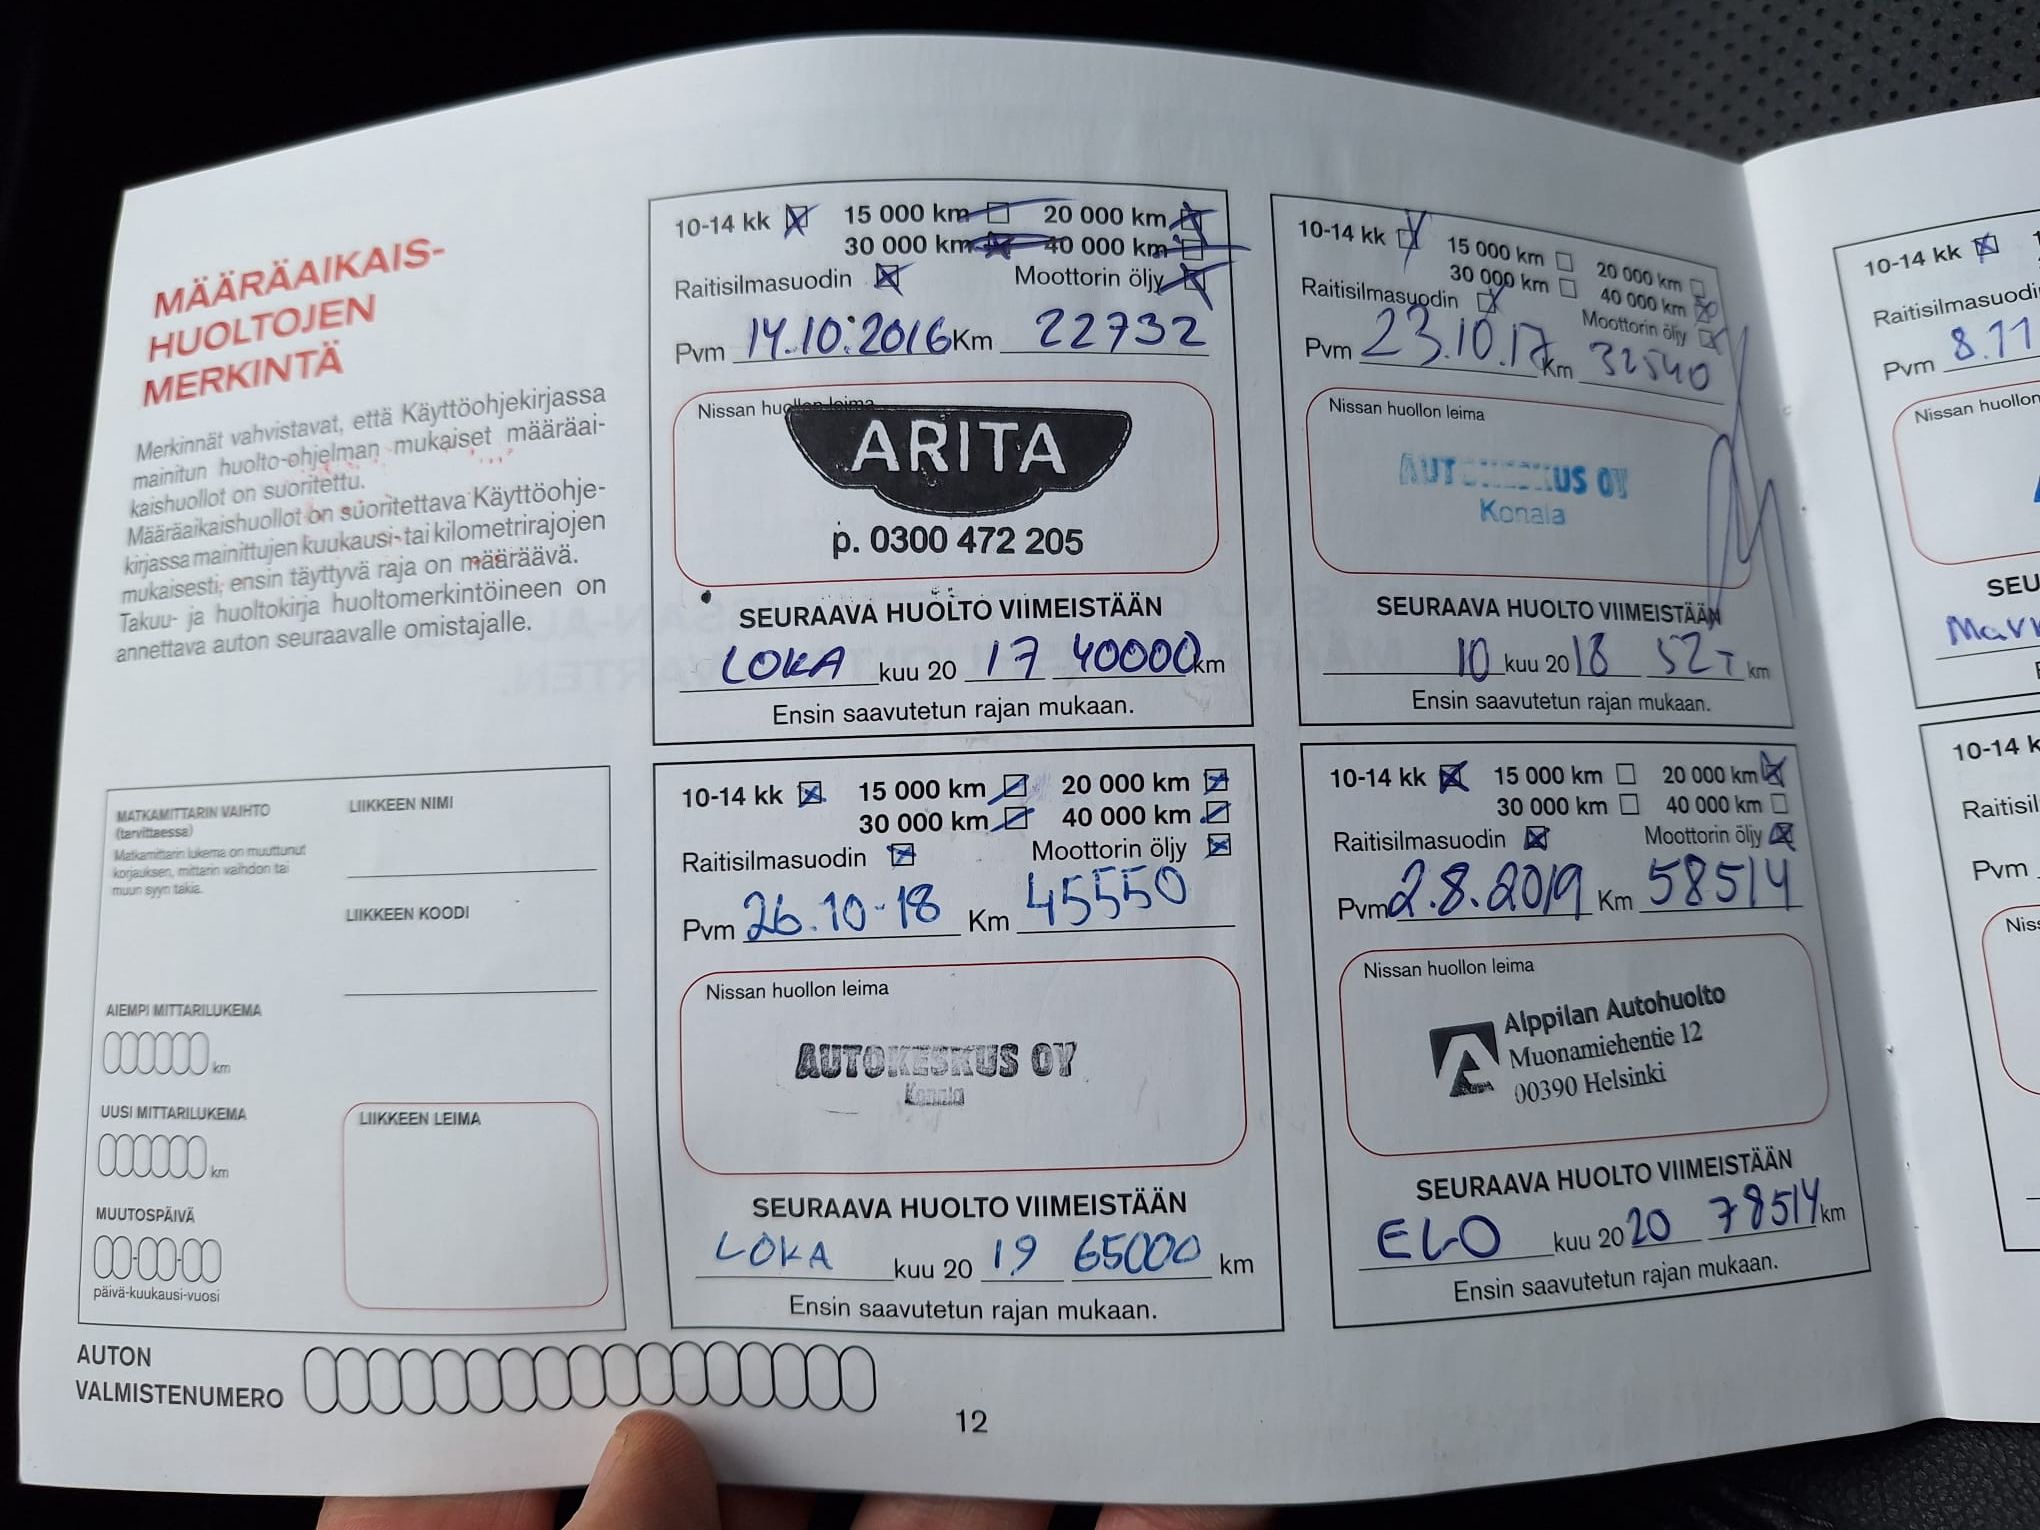 MÄÄRÄAIKAIS-
HUOLTOJEN
MERKINTÄ
Merkinnät vahvistavat, että Käyttöohjekirjassa
mainitun huolto-ohjelman mukaiset määräai-
kaishuollot on suoritettu.
Määräaikaishuollot on suoritettava Käyttöohje-
kirjassa mainittujen kuukausi- tai kilometrirajojen
mukaisesti, ensin täyttyvä raja on määräävä.
Takuu- ja huoltokirja huoltomerkintöineen on
annettava auton seuraavalle omistajalle.
MATKAMITTARIN VAIHTO
(tarvittaessa)
Matkamittarin lukema on muuttunut
korjauksen, mittarin vaihdon tai
muun syyn takia.
LIIKKEEN NIMI
LIIKKEEN KOODI
AIEMPI MITTARILUKEMA
km
UUSI MITTARILUKEMA
km
MUUTOSPÄIVÄ
päivä-kuukausi-vuosi
LIIKKEEN LEIMA
AUTON
VALMISTENUMERO
10-14 kk 15 000 km 20 000 km
30 000 km 40 000 km
Raitisilmasuodin Moottorin öljy
Pvm 14.10.2016 Km 22732
Nissan huollon leima
ARITA
p. 0300 472 205
SEURAAVA HUOLTO VIIMEISTÄÄN
LOKA kuu 20 17 40000 km
Ensin saavutetun rajan mukaan.
10-14 kk 15 000 km 20 000 km
30 000 km 40 000 km
Raitisilmasuodin Moottorin öljy
Pvm 23.10.17 Km 32540
Nissan huollon leima
AUTOKESKUS OY
Konala
SEURAAVA HUOLTO VIIMEISTÄÄN
10 kuu 20 18 52T km
Ensin saavutetun rajan mukaan.
10-14 kk 15 000 km 20 000 km
30 000 km 40 000 km
Raitisilmasuodin Moottorin öljy
Pvm 26.10-18 Km 45550
Nissan huollon leima
AUTOKESKUS OY
Konala
SEURAAVA HUOLTO VIIMEISTÄÄN
LOKA kuu 20 19 65000 km
Ensin saavutetun rajan mukaan.
10-14 kk 15 000 km 20 000 km
30 000 km 40 000 km
Raitisilmasuodin Moottorin öljy
Pvm 2.8.2019 Km 58514
Nissan huollon leima
Alppilan Autohuolto
Muonamiehentie 12
00390 Helsinki
SEURAAVA HUOLTO VIIMEISTÄÄN
ELO kuu 20 20 78514 km
Ensin saavutetun rajan mukaan.
12
10-14 kk
Pvm 8.11
Nissan huollon
Pvm